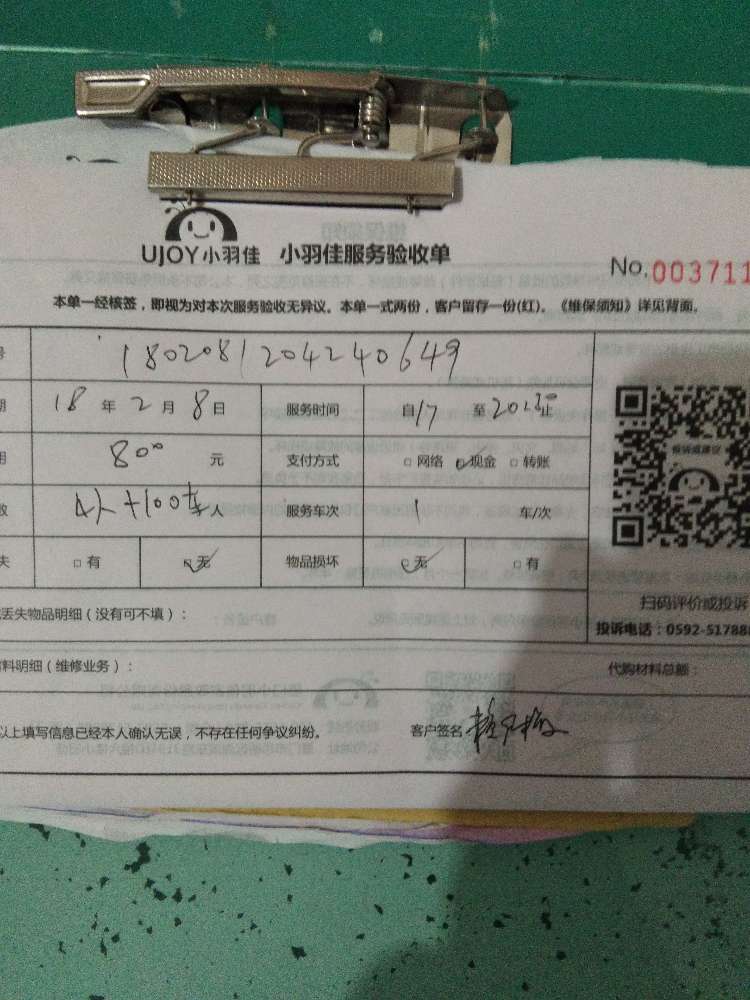 UJOY小羽佳 小羽佳服务验收单
No.003711
本单一经核签，即视为对本次服务验收无异议。本单一式两份，客户留存一份(红)。《维保须知》详见背面。
号 1802081204240649
期 18 年 2 月 8 日 服务时间 自17 至2023⁰止
用 800 元 支付方式 □网络 □现金 □转账
数 4人+100车人 服务车次 1 车/次
失 □有 □无 物品损坏 □无 □有
丢失物品明细（没有可不填）：
扫码评价或投诉
投诉电话：0592-517888
料明细（维修业务）： 代购材料总额：
以上填写信息已经本人确认无误，不存在任何争议纠纷。 客户签名